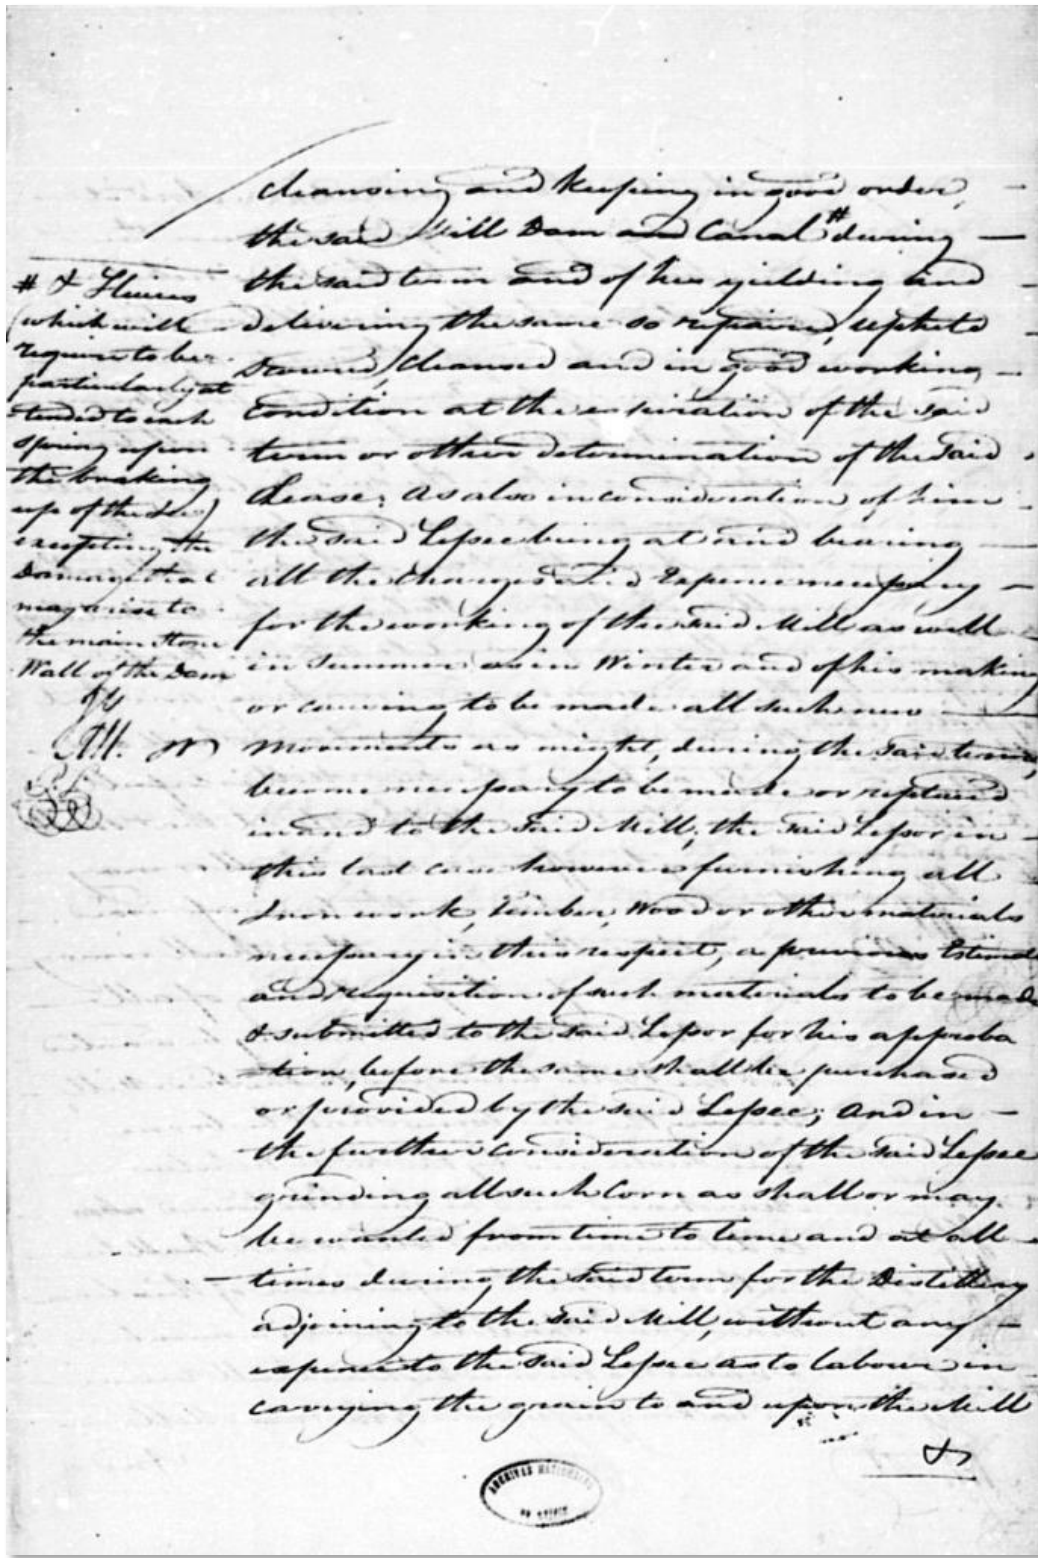 cleansing and keeping in good order,
the said Mill Dam and Canal # during
the said term and of his yielding and
delivering the same so repaired, upheld
scoured, cleansed and in good working
condition at the expiration of the said
term or other determination of the said
Lease; As also in consideration of him
the said Lessee being at and bearing
all the charges and Expence necessary
for the working of the said Mill as well
in Summer as in Winter and of his making
or causing to be made all such new
Movements as might, during the said term,
become necessary to be made or replaced
in and to the said Mill; the said Lessor in
this last case however furnishing all
Iron work, Timber, Wood or other materials
necessary in this respect, a previous Estimate
and requisition of such materials to be made
& submitted to the said Lessor for his approba
tion, before the same shall be purchased
or provided by the said Lessee; And in
the further consideration of the said Lessee
grinding all such Corn as shall or may
be wanted from time to time and at all
times during the said term for the Distillery
adjoining to the said Mill, without any
expence to the said Lessee as to labour in
carrying the grain to and upon the Mill
&
# & Sluices
(which will
require to be
particularly at
tended to each
spring upon
the breaking
up of the Ice)
excepting the
Damage that
may arise to
the main Stone
Wall of the Dam
ARCHIVES NATIONALES
DU QUEBEC